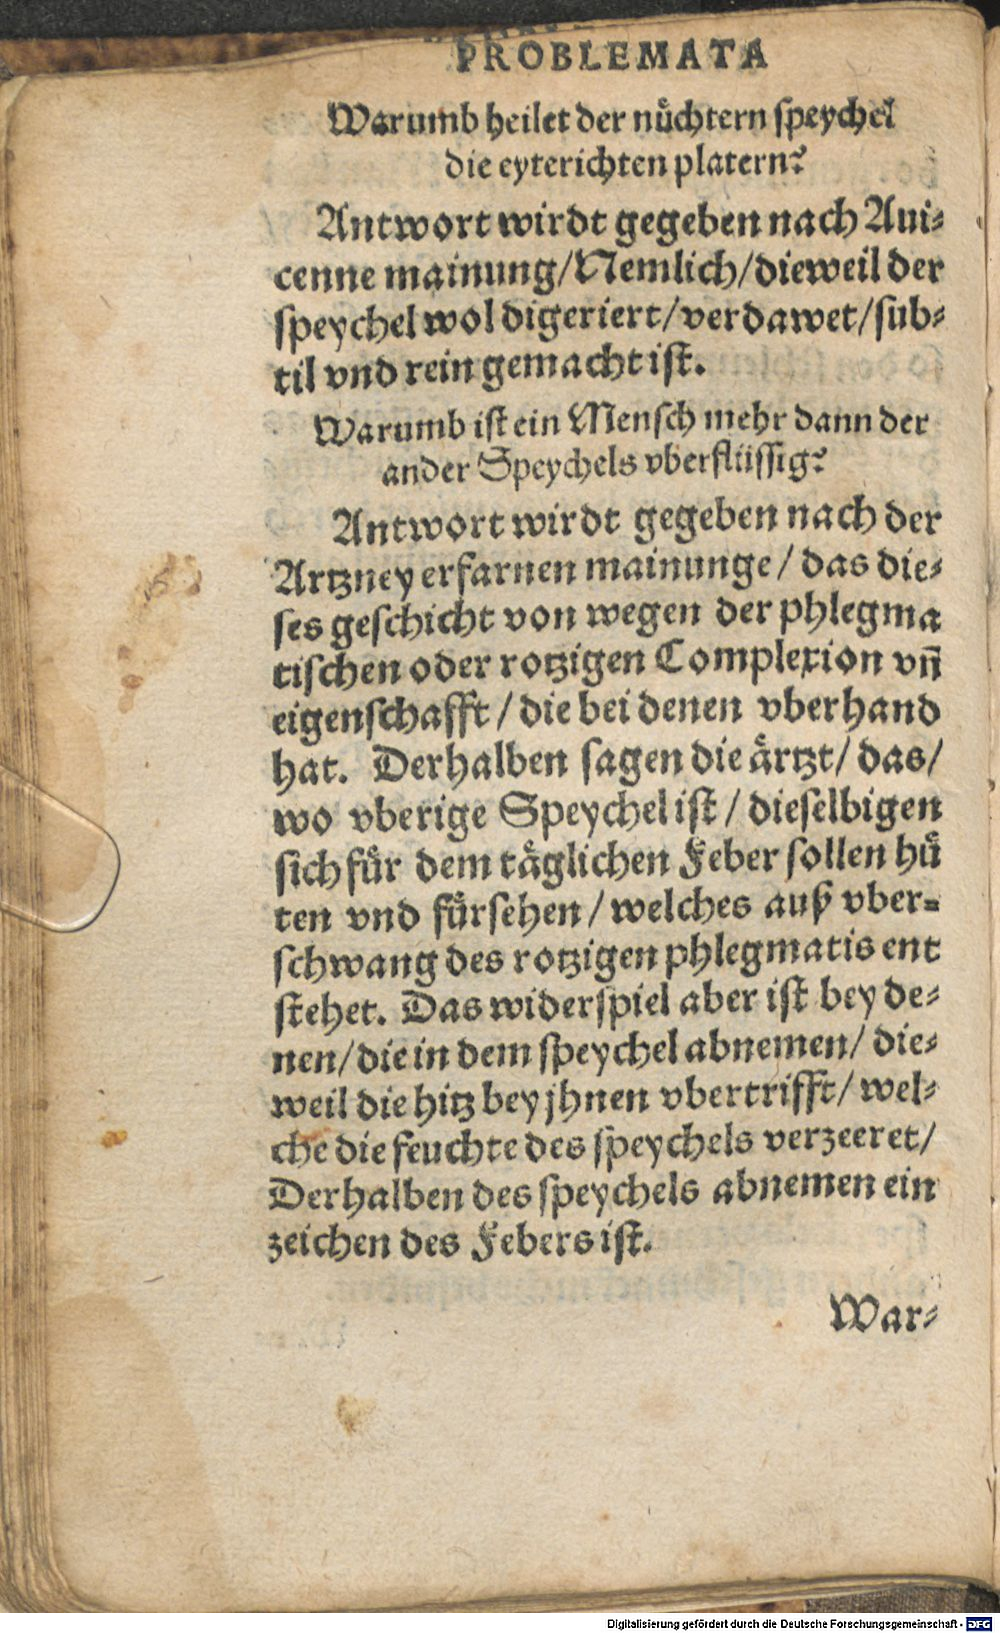 PROBLEMATA
Warumb heilet der nuͤchtern speychel
die eyterichten platern?
Antwort wirdt gegeben nach Aui-
cenne mainung/Nemlich/dieweil der
speychel wol digeriert/verdawet/sub-
til vnd rein gemacht ist.
Warumb ist ein Mensch mehr dann der
ander Speychels vberflüssig?
Antwort wirdt gegeben nach der
Artzney erfarnen mainunge/ das die-
ses geschicht von wegen der phlegma
tischen oder rotzigen Complexion vñ
eigenschafft/die bei denen vberhand
hat. Derhalben sagen die aͤrtzt/ das/
wo vberige Speychel ist/ dieselbigen
sich fuͤr dem taͤglichen Feber sollen huͤ
ten vnd fuͤrsehen/welches auß vber-
schwang des rotzigen phlegmatis ent
stehet. Das widerspiel aber ist bey de-
nen/die in dem speychel abnemen/ die-
weil die hitz bey jhnen vbertrifft/ wel-
che die feuchte des speychels verzeeret/
Derhalben des speychels abnemen ein
zeichen des Febers ist.
War-
Digitalisierung gefördert durch die Deutsche Forschungsgemeinschaft - DFG